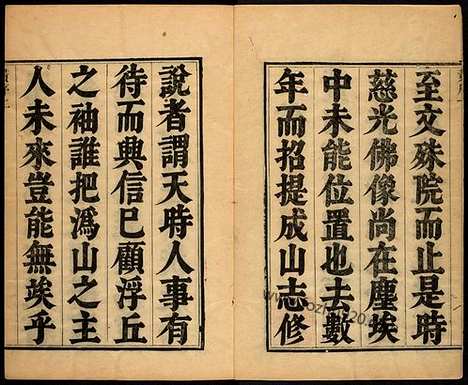 至文殊院而止是時
慈光佛像尚在塵埃
中未能位置也去數
年而招提成山志修
說者謂天時人事有
待而興信已顧浮丘
之袖誰把溈山之主
人未來豈能無竢乎